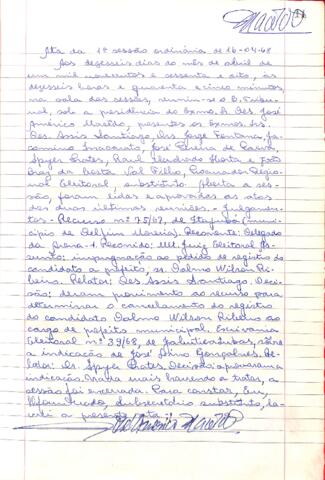 Macêdo
Ata da 1ª sessão ordinária de 16-04-68
Aos dezesseis dias do mês de abril de
um mil novecentos e sessenta e oito, às
dezesseis horas e quarenta e cinco minutos,
na sala das sessões, reuniu-se o E. Tribu-
nal, sob a presidência do Exmo. Sr. Des. José
Américo Macêdo, presentes os Exmos. Srs.
Des. Assis Santiago, Drs. Jorge Fontana,
José Pereira de Paiva,
Spyer Prates, Raul Machado Horta e
da Costa Val Filho, Procurador Regio-
nal Eleitoral, substituto. Aberta a ses-
são, foram lidas e aprovadas as atas
das duas últimas reuniões. Julgamen-
tos - Recurso nº 75/67, de Itajubá (muni-
cípio de Delfim Moreira). Recorrente: Delegado
da Arena-1. Recorrido: MM. Juiz Eleitoral. As-
sunto: impugnação ao pedido de registro do
candidato a prefeito, sr. Dalmo Wilson Ri-
beiro. Relator: Des. Assis Santiago. Deci-
são: deram provimento ao recurso para
determinar o cancelamento do registro
do candidato Dalmo Wilson Ribeiro ao
cargo de prefeito municipal. Escrivania
Eleitoral nº 39/68, de Jaboticatubas, sobre
a indicação de José Dino Gonçalves. Re-
lator: Dr. Spyer Prates. Decisão: aprovaram a
indicação. Nada mais havendo a tratar, a
sessão foi encerrada. Para constar, Eu,
subsecretário substituto, la-
vrei a presente ata.
José Américo Macêdo